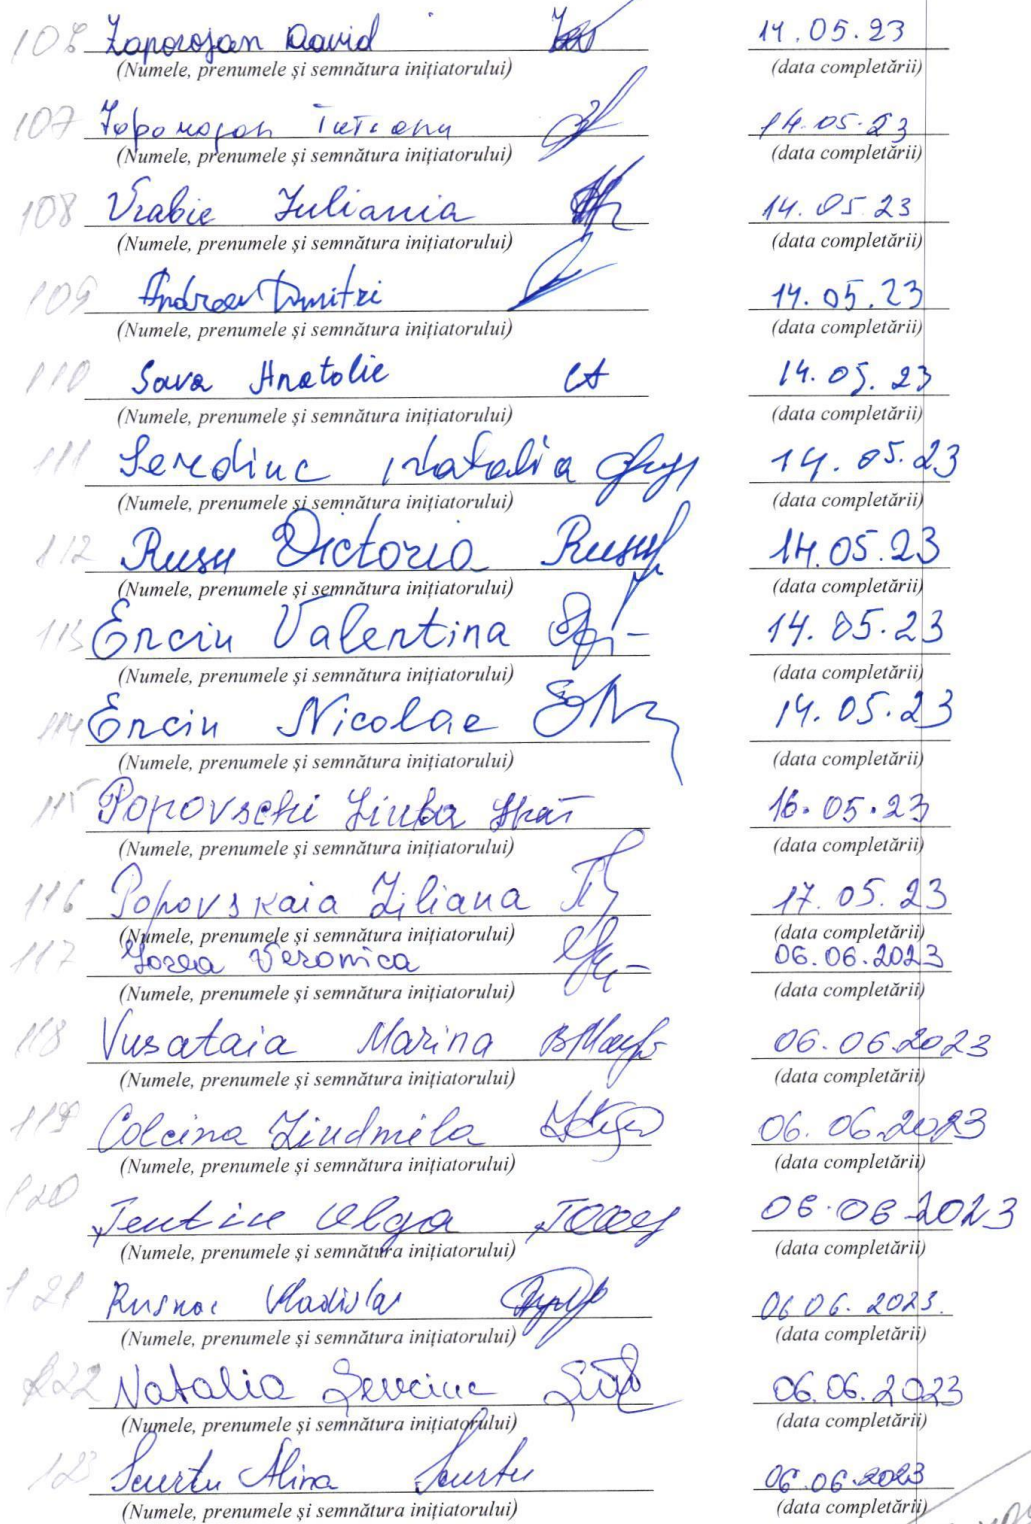 106 Zaporojan David 14.05.23
(Numele, prenumele și semnătura inițiatorului) (data completării)
107 Zaporojan Tatiana 14.05.23
(Numele, prenumele și semnătura inițiatorului) (data completării)
108 Vrabie Iuliania 14.05.23
(Numele, prenumele și semnătura inițiatorului) (data completării)
109 Andreev Dmitri 14.05.23
(Numele, prenumele și semnătura inițiatorului) (data completării)
110 Sava Anatolie 14.05.23
(Numele, prenumele și semnătura inițiatorului) (data completării)
111 Serediuc Natalia 14.05.23
(Numele, prenumele și semnătura inițiatorului) (data completării)
112 Rusu Victoria Rusu 14.05.23
(Numele, prenumele și semnătura inițiatorului) (data completării)
113 Erciu Valentina 14.05.23
(Numele, prenumele și semnătura inițiatorului) (data completării)
114 Erciu Nicolae 14.05.23
(Numele, prenumele și semnătura inițiatorului) (data completării)
115 Popovschi Liuba 16.05.23
(Numele, prenumele și semnătura inițiatorului) (data completării)
116 Popovskaia Liliana 17.05.23
(Numele, prenumele și semnătura inițiatorului) (data completării)
117 Veronica 06.06.2023
(Numele, prenumele și semnătura inițiatorului) (data completării)
118 Vusataia Marina 06.06.2023
(Numele, prenumele și semnătura inițiatorului) (data completării)
119 Colcina Liudmila 06.06.2023
(Numele, prenumele și semnătura inițiatorului) (data completării)
120 Olga 06.06.2023
(Numele, prenumele și semnătura inițiatorului) (data completării)
121 Rusnac Vladislav 06.06.2023.
(Numele, prenumele și semnătura inițiatorului) (data completării)
122 Natalia Sevciuc 06.06.2023
(Numele, prenumele și semnătura inițiatorului) (data completării)
123 Scurtu Alina Scurtu 06.06.2023
(Numele, prenumele și semnătura inițiatorului) (data completării)